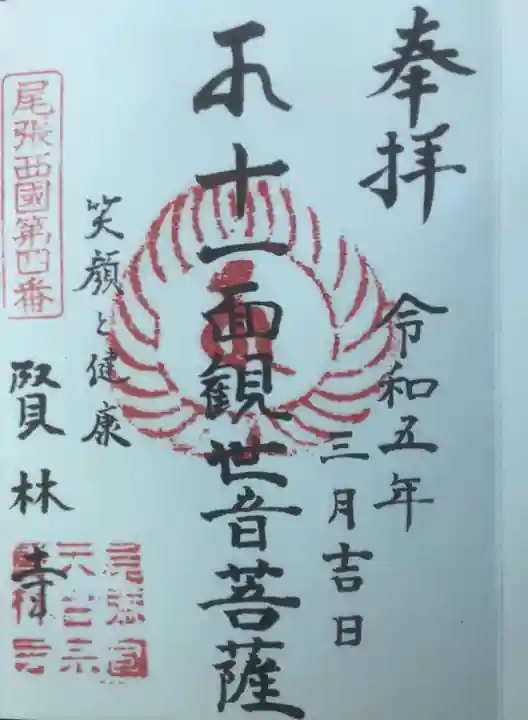 奉拝
令和五年
三月吉日
十一面観世音菩薩
笑顔と健康
尾張西國第四番
賢林寺
尾張國
天台宗
賢林寺